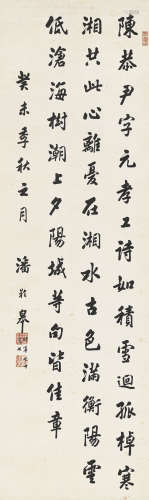 陳恭尹字元孝工詩如積雪迴孤棹寒
湘共此心離憂在湘水古色滿衡陽雲
低滄海樹潮上夕陽城等句皆佳章
癸未季秋之月 潘齡皋